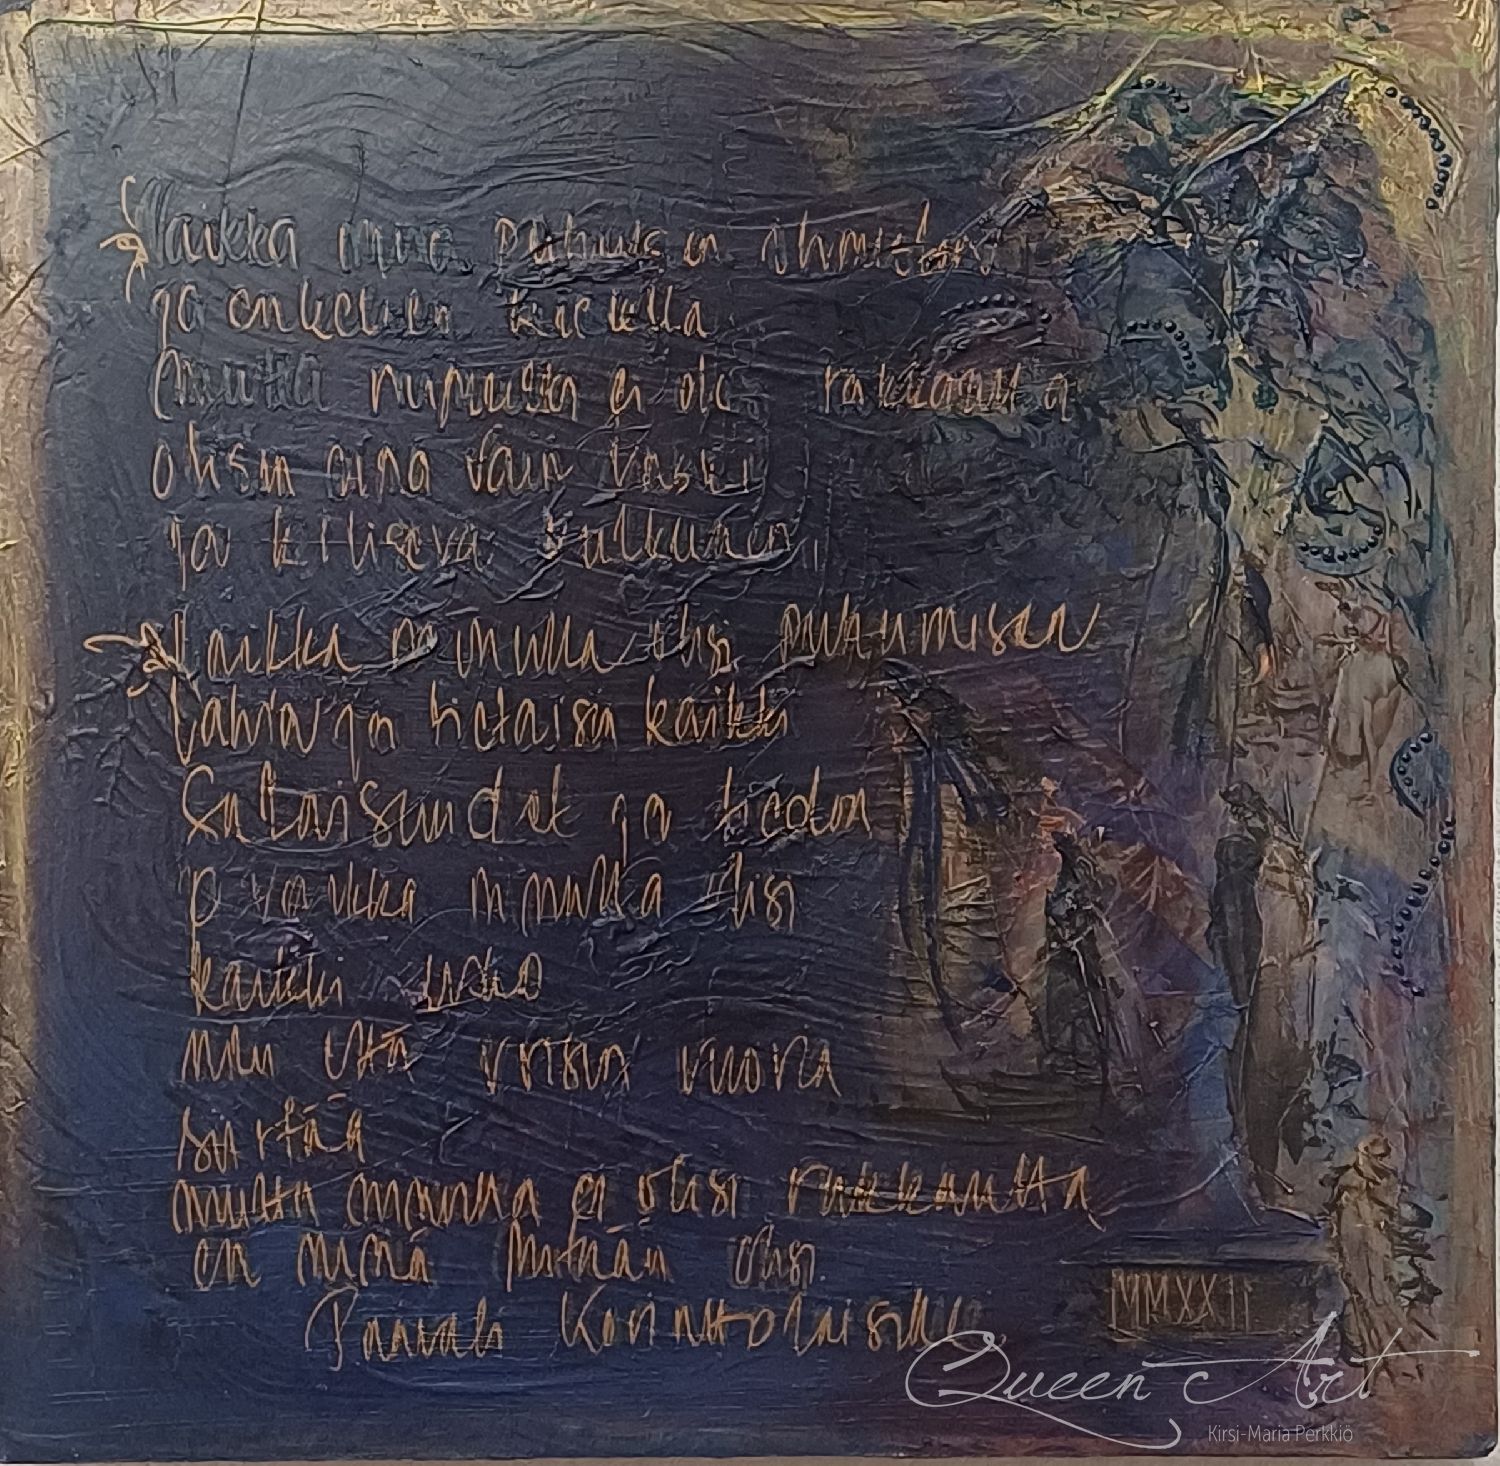 Vaikka minä puhuisin ihmisten
ja enkelien kielellä
mutta minulla ei olisi rakkautta
olisin aina vain vaski
ja kilisevä kulkunen
Vaikka minulla olisi puhumisen
lahja ja tietäisin kaikki
salaisuudet ja tiedon
ja vaikka minulla olisi
kaikki usko
niin että voisin vuoria
siirtää
mutta minulla ei olisi rakkautta
en minä mitään olisi
Paavali Korinttolaisille
MMXXII
Queen Art
Kirsi-Maria Perkkiö